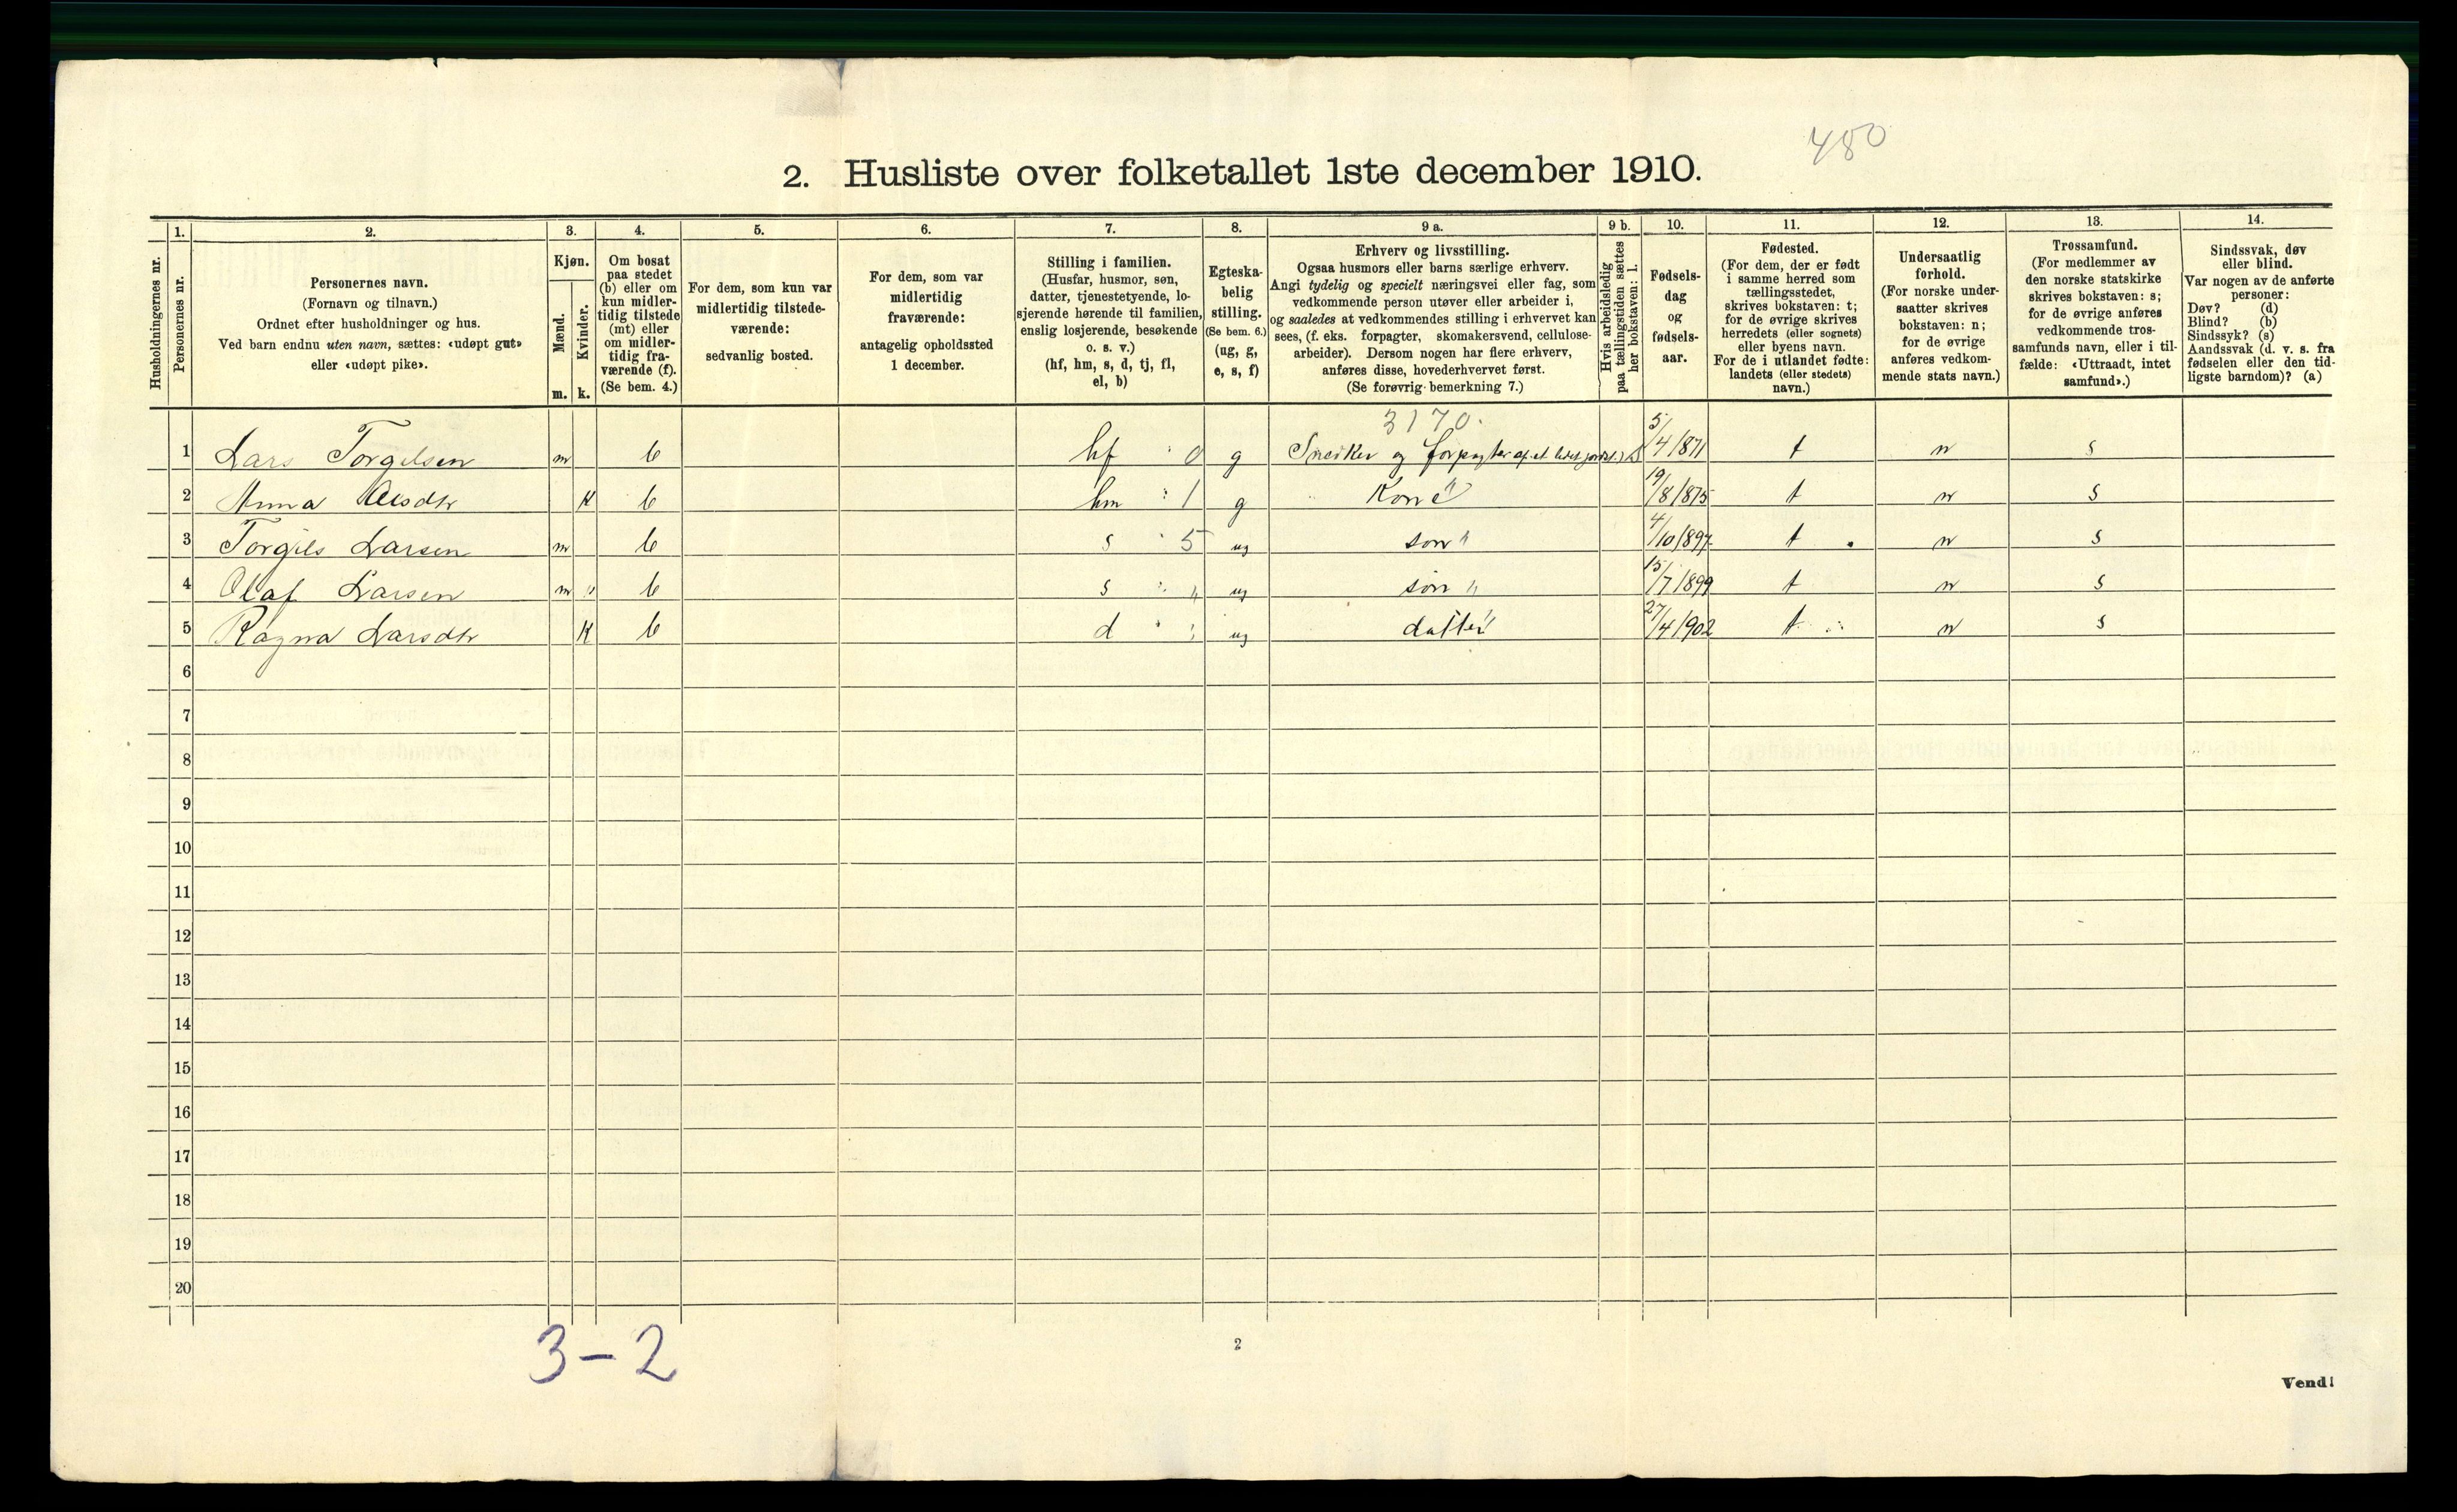 480
2. Husliste over folketallet 1ste december 1910.
Husholdningernes nr.
1.
Personernes nr.
2.
Personernes navn.
(Fornavn og tilnavn.)
Ordnet efter husholdninger og hus.
Ved barn endnu uten navn, sættes: «udøpt gut»
eller «udøpt pike».
3.
Kjøn.
Mænd.
Kvinder.
m. k.
4.
Om bosat
paa stedet
(b) eller om
kun midler-
tidig tilstede
(mt) eller
om midler-
tidig fra-
værende (f).
(Se bem. 4.)
5.
For dem, som kun var
midlertidig tilstede-
værende:
sedvanlig bosted.
6.
For dem, som var
midlertidig
fraværende:
antagelig opholdssted
1 december.
7.
Stilling i familien.
(Husfar, husmor, søn,
datter, tjenestetyende, lo-
sjerende hørende til familien,
enslig losjerende, besøkende
o. s. v.)
(hf, hm, s, d, tj, fl,
el, b)
8.
Egteska-
belig
stilling.
(Se bem. 6.)
(ug, g,
e, s, f)
9 a.
Erhverv og livsstilling.
Ogsaa husmors eller barns særlige erhverv.
Angi tydelig og specielt næringsvei eller fag, som
vedkommende person utøver eller arbeider i,
og saaledes at vedkommendes stilling i erhvervet kan
sees, (f. eks. forpagter, skomakersvend, cellulose-
arbeider). Dersom nogen har flere erhverv,
anføres disse, hovederhvervet først.
(Se forøvrig bemerkning 7.)
9 b.
Hvis arbeidsledig
paa tællingstiden sættes
her bokstaven: l.
10.
Fødsels-
dag
og
fødsels-
aar.
11.
Fødested.
(For dem, der er født
i samme herred som
tællingsstedet,
skrives bokstaven: t;
for de øvrige skrives
herredets (eller sognets)
eller byens navn.
For de i utlandet fødte:
landets (eller stedets)
navn.)
12.
Undersaatlig
forhold.
(For norske under-
saatter skrives
bokstaven: n;
for de øvrige
anføres vedkom-
mende stats navn.)
13.
Trossamfund.
(For medlemmer av
den norske statskirke
skrives bokstaven: s;
for de øvrige anføres
vedkommende tros-
samfunds navn, eller i til-
fælde: «Uttraadt, intet
samfund».)
14.
Sindssvak, døv
eller blind.
Var nogen av de anførte
personer:
Døv? (d)
Blind? (b)
Sindssyk? (s)
Aandssvak (d. v. s. fra
fødselen eller den tid-
ligste barndom)? (a)
3170.
1 Lars Torgilsen m b hf 0 g Sneiker og forpagter af et lidet 5/4/871 t n s
2 Anna k b hm 1 g Kone " 19/8/875 t n s
3 Torgils Larsen m b s 5 ug søn " 4/10/897 t n s
4 Olaf Larsen m b s " ug søn " 15/7/899 t n s
5 Ragna Larsdtr k b d ug datter " 27/4/902 t n s
6
7
8
9
10
11
12
13
14
15
16
17
18
19
20
3-2
2
Vend!